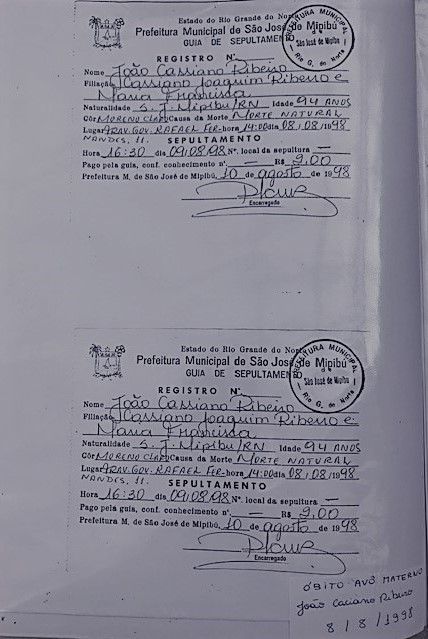 Estado do Rio Grande do Norte
Prefeitura Municipal de São José de Mipibú
GUIA DE SEPULTAMENTO
PREFEITURA MUNICIPAL
de
São José de Mipibu
Rio G. do Norte
REGISTRO N.
Nome João Cassiano Ribeiro
Filiação Cassiano Joaquim Ribeiro e
Maria Francisca
Naturalidade S. J. Mipibu/RN Idade 94 ANOS
Côr MORENO CLARO Causa da Morte MORTE NATURAL
Lugar TRAV. GOV. RAFAEL FER- hora 14:00 dia 08/08/1998
NANDES, 11. SEPULTAMENTO
Hora 16:30 dia 09/08/98 Nº. local da sepultura —
Pago pela guia, conf. conhecimento n°. — R$ 2,00
Prefeitura M. de São José de Mipibú, 10 de agosto de 1998
Encarregado
Estado do Rio Grande do Norte
Prefeitura Municipal de São José de Mipibú
GUIA DE SEPULTAMENTO
PREFEITURA MUNICIPAL
de
São José de Mipibu
Rio G. do Norte
REGISTRO N.
Nome João Cassiano Ribeiro
Filiação Cassiano Joaquim Ribeiro e
Maria Francisca
Naturalidade S. J. Mipibu/RN Idade 94 ANOS
Côr MORENO CLARO Causa da Morte MORTE NATURAL
Lugar TRAV. GOV. RAFAEL FER- hora 14:00 dia 08/08/1998
NANDES, 11. SEPULTAMENTO
Hora 16:30 dia 09/08/98 Nº. local da sepultura —
Pago pela guia, conf. conhecimento n°. — R$ 2,00
Prefeitura M. de São José de Mipibú, 10 de agosto de 1998
Encarregado
ÓBITO AVÔ MATERNO
João Caciano Ribeiro
8/8/1998